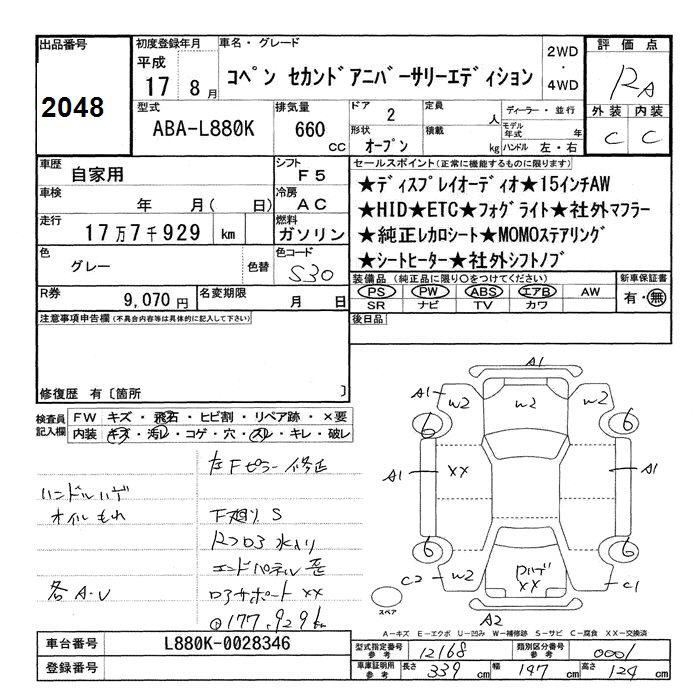 出品番号
2048
初度登録年月
平成
17 8 月
車名・グレード
コペン セカンドアニバーサリーエディション
2WD
・
4WD
評価点
RA
外装 内装
C C
型式
ABA-L880K
排気量
660 CC
ドア
2
形状
オープン
定員
人
積載
kg
ディーラー・並行
モデル年式 年
ハンドル 左・右
車歴
自家用
シフト
F5
車検
年 月( 日)
冷房
AC
走行
17万7千929 km
燃料
ガソリン
色
グレー
色替
色コード
S30
R券
9,070円
名変期限
月 日
セールスポイント(正常に機能するものに限ります)
★ディスプレイオーディオ★15インチAW
★HID★ETC★フォグライト★社外マフラー
★純正レカロシート★MOMOステアリング
★シートヒーター★社外シフトノブ
装備品 (純正品に限り○をつけてください)
PS PW ABS エアB AW
SR ナビ TV カワ
新車保証書
有・無
後日品
注意事項申告欄(不具合内容等は具体的に記入して下さい)
修復歴 有〔箇所 〕
検査員
記入欄
FW キズ・飛石・ヒビ割・リペア跡・×要
内装 キズ・汚レ・コゲ・穴・スレ・キレ・破レ
左Fピラー修正
ハンドルハゲ
オイルもれ
下廻りS
Rフロア水入り
エンドパネル歪
各A・U
ロアサポートXX
177,929km
A1
A1 W2 W2 W2
6 6
A1 XX A1
6 6
C2 W2 ロハゲ C1
XX
A2
スペア
A-キズ E-エクボ U-凹み W-補修跡 S-サビ C-腐食 XX-交換済
車台番号
L880K-0028346
登録番号
型式指定番号
参考
12168
類別区分番号
参考
0001
車庫証明用
参考
長さ 339 cm 幅 147 cm 高さ 124 cm